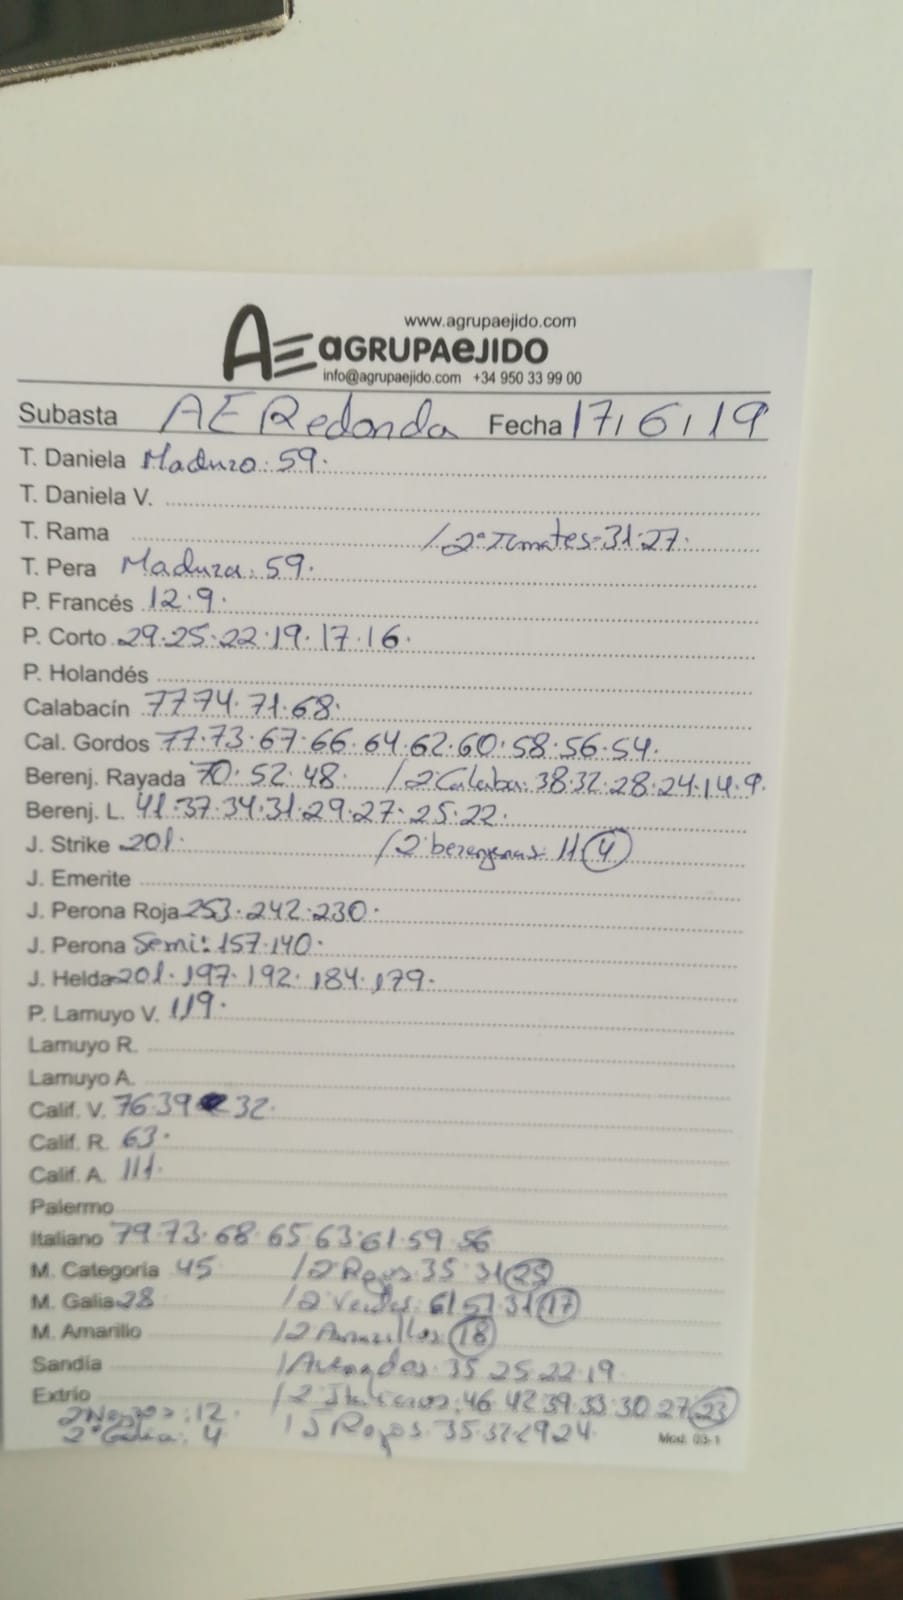 www.agrupaejido.com
AE aGRUPAeJIDO
info@agrupaejido.com +34 950 33 99 00
Subasta AE Redonda Fecha 17/6/19
T. Daniela Maduro: 59.
T. Daniela V.
T. Rama /2ª Tomates=31.27.
T. Pera Madura: 59.
P. Francés 12.9.
P. Corto 29.25.22.19.17.16.
P. Holandés
Calabacín 77.74.71.68.
Cal. Gordos 77.73.67.66.64.62.60.58.56.54.
Berenj. Rayada 70.52.48. /2 Calaba: 38.32.28.24.14.9.
Berenj. L. 41.37.34.31.29.27.25.22.
J. Strike 201. /2ª berengenas: 11 (4)
J. Emerite
J. Perona Roja 253.242.230.
J. Perona Semi: 157.140.
J. Helda 201.197.192.184.179.
P. Lamuyo V. 119.
Lamuyo R.
Lamuyo A.
Calif. V. 76.39 32.
Calif. R. 63.
Calif. A. 111.
Palermo
Italiano 79.73.68.65.63.61.59.56
M. Categoría 45 /2 Rojos: 35.31 (25)
M. Galia 28 /2 Verdes: 61.51.31 (17)
M. Amarillo /2 Amarillos (18)
Sandía / 35 25.22.19
Extrío /2 Italianos: 46.42.39.33.30.27 (23)
: 12.
2ª Galia: 4 / Rojos. 35.32.29.24.
Mod. 03-1